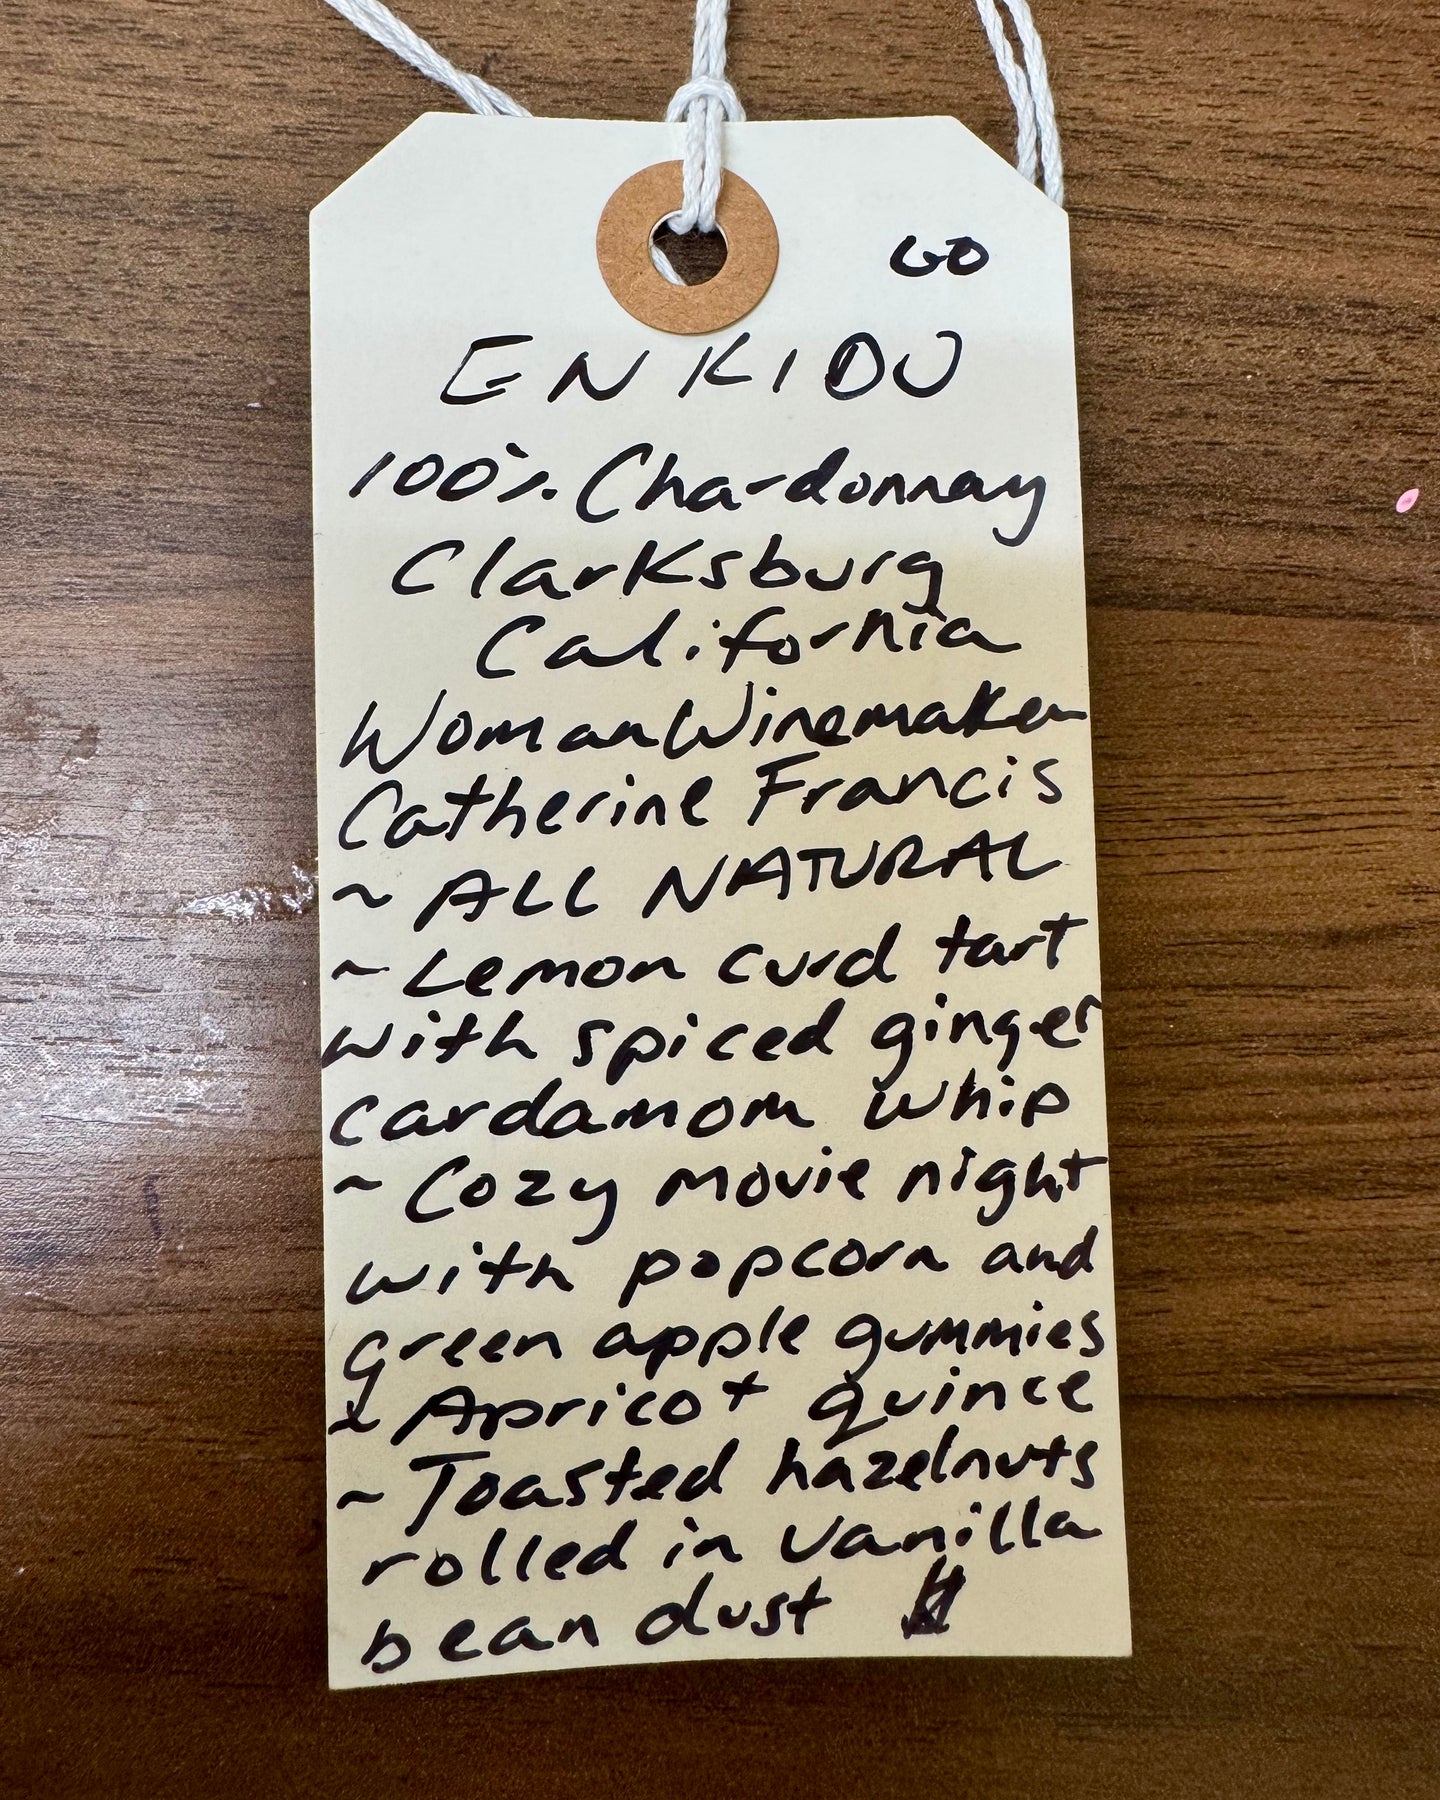 GO
ENKIDU
100% Chardonnay
Clarksburg
California
Woman Winemaker
Catherine Francis
~ ALL NATURAL
~ Lemon curd tart
with spiced ginger
cardamom whip
~ Cozy movie night
with popcorn and
green apple gummies
~ Apricot quince
~ Toasted hazelnuts
rolled in vanilla
bean dust